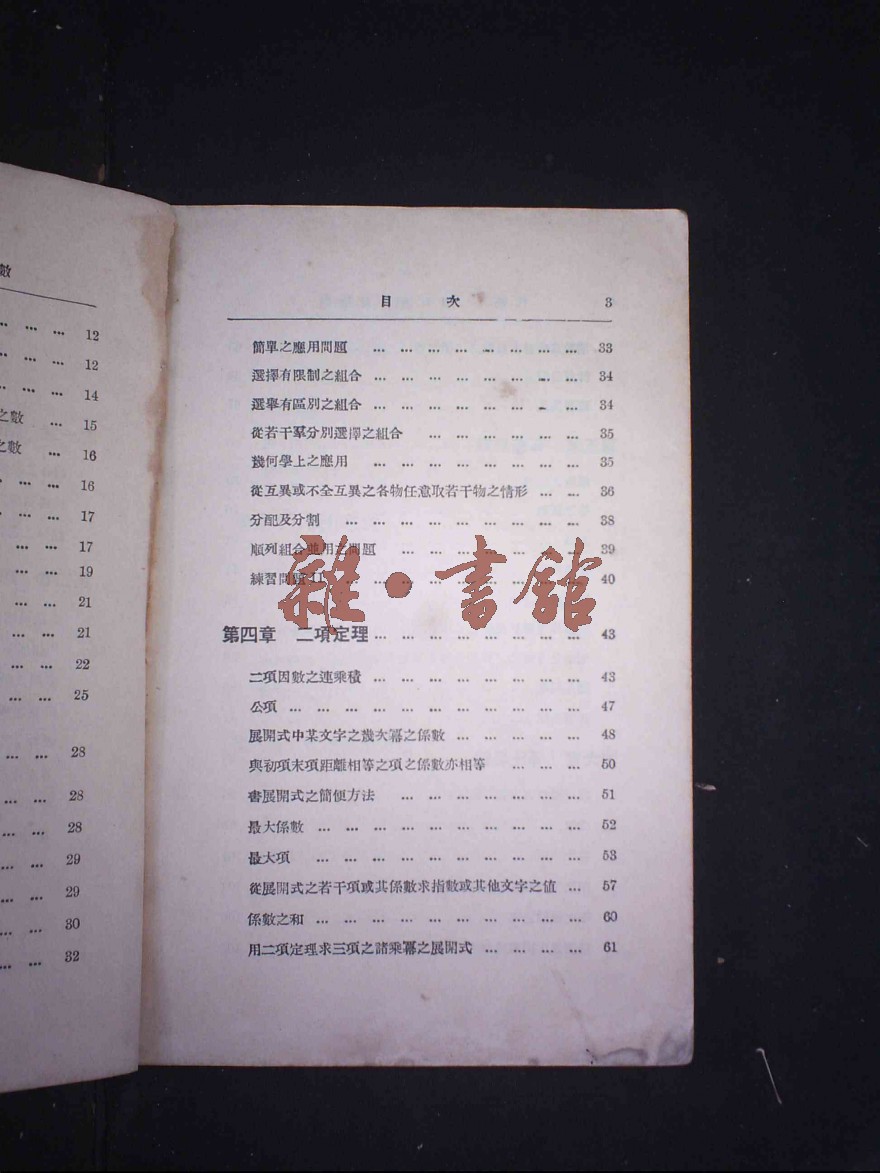 數
… … … 12
… … … 12
… … … 14
之數 … 15
之數 … 16
… … … 16
… … … 17
… … 17
… … … 19
… … … 21
… … 21
… … 22
… … 25
… … 28
… … 28
… … 28
… … 29
… … 29
… … 30
… … 32
目 次 3
簡單之應用問題 … … … … … … … … 33
選擇有限制之組合 … … … … … … … … 34
選舉有區別之組合 … … … … … … … … 34
從若干羣分別選擇之組合 … … … … … … 35
幾何學上之應用 … … … … … … … … 35
從互異或不全互異之各物任意取若干物之情形 … … 36
分配及分割 … … … … … … … … … 38
順列組合並用之問題 … … … … … … … 39
練習問題 II … … … … … … … … … 40
雜·書館
第四章 二項定理 … … … … … … … … 43
二項因數之連乘積 … … … … … … … … 43
公項 … … … … … … … … … … … 47
展開式中某文字之幾次冪之係數 … … … … … 48
與初項末項距離相等之項之係數亦相等 … … … 50
書展開式之簡便方法 … … … … … … … 51
最大係數 … … … … … … … … … … 52
最大項 … … … … … … … … … … 53
從展開式之若干項或其係數求指數或其他文字之値 … 57
係數之和 … … … … … … … … … … 60
用二項定理求三項之諸乘冪之展開式 … … … … 61